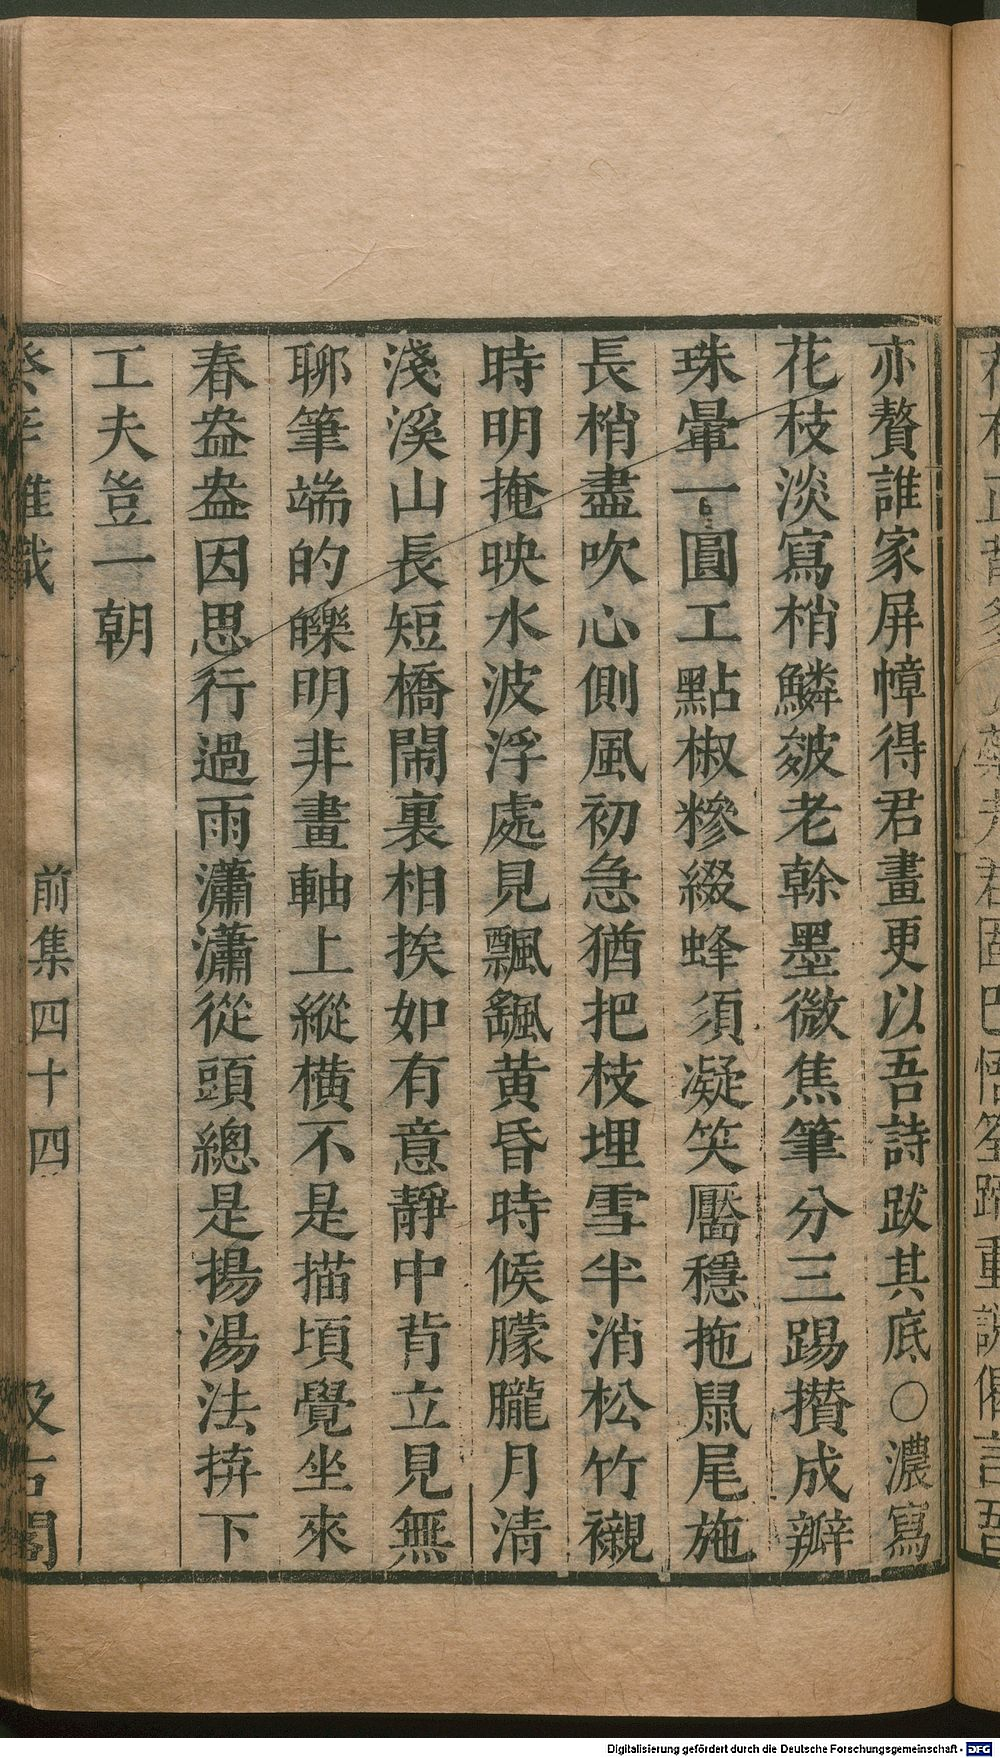 亦贅誰家屏幛得君畫更以吾詩跋其底○濃寫
花枝淡寫梢鱗皴老幹墨微焦筆分三踢攢成瓣
珠暈一圓工點椒糝綴蜂須凝笑靨穩拖鼠尾施
長梢盡吹心側風初急猶把枝埋雪半消松竹襯
時明掩映水波浮處見飄颻黄昏時候朦朧月清
淺溪山長短橋閙裏相挨如有意靜中背立見無
聊筆端的皪明非畫軸上縱橫不是描頃覺坐來
春盎盎因思行過雨瀟瀟從頭總是揚湯法拚下
工夫豈一朝
癸辛雜識
前集四十四
汲古閣
Digitalisierung gefördert durch die Deutsche Forschungsgemeinschaft - DFG